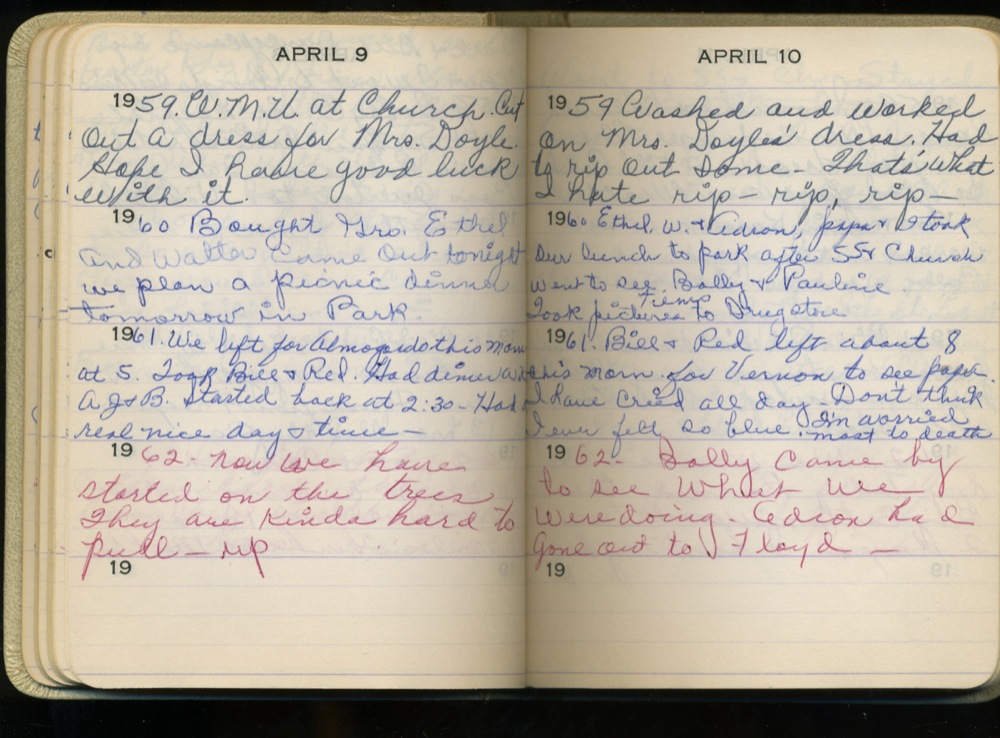 APRIL 9
1959. W.M.U. at Church. Cut
Out a dress for Mrs. Doyle.
Hope I have good luck
with it.
1960 Bought Gro. Ethel
and Walter Came Out tonight
we plan a picnic dinner
tomorrow in Park.
1961. We left for Almogordo this morn
at 5. Took Bill & Red. Had dinner with
A.J & B. Started back at 2:30 - Had a
real nice day & time -
1962 - now we have
started on the trees
They are Kinda hard to
pull - up
19
APRIL 10
1959 Washed and worked
on Mrs. Doyles' dress. Had
to rip out some - That's what
I hate rip - rip, rip -
1960 Ethel, W. & Edron, papa & I took
our lunch to park after SS & Church
went to see Bolly & Pauline
Took pictures to Drug store
1961. Bill & Red left about 8
this morn. for Vernon to see papa.
I have cried all day - Don't think
I ever felt so blue. I'm worried
most to death
1962 - Bolly Came by
to see What We
Were doing - Edron had
Gone out to Floyd -
19